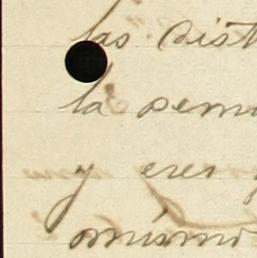 las dist
la sema
y eres
mismo